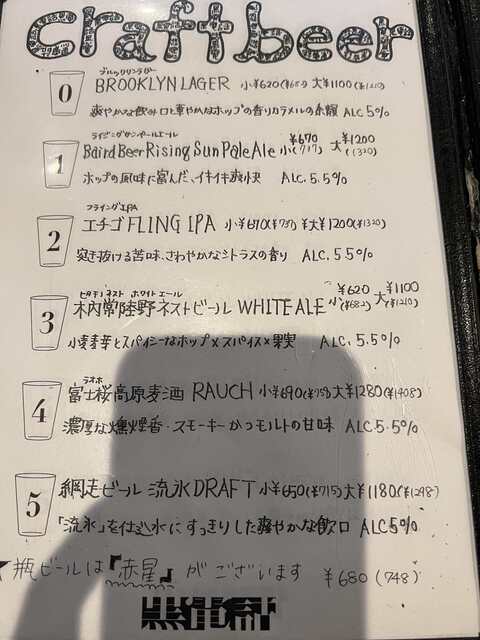 craft beer
ブルックリンラガー
0 BROOKLYN LAGER 小¥620(¥682) 大¥1100(¥1210)
爽やかな飲み口と華やかなホップの香りカラメルの余韻 ALC 5%
ライジングサンペールエール
1 Baird Beer Rising Sun Pale Ale 小¥670(737) 大¥1200(1320)
ホップの風味に富んだ、イキイキ爽快 ALC. 5.5%
フライングIPA
2 エチゴ FLING IPA 小¥670(¥737) 大¥1200(¥1320)
突き抜ける苦味、さわやかなシトラスの香り ALC. 5.5%
ヒタチノネスト ホワイトエール
3 木内常陸野ネストビール WHITE ALE 小¥620(¥682) 大¥1100(¥1210)
小麦麦芽とスパイシーなホップ×スパイス×果実 ALC. 5.5%
ラオホ
4 富士桜高原麦酒 RAUCH 小¥690(¥759) 大¥1280(¥1408)
濃厚な燻煙香・スモーキーかつモルトの甘味 ALC 5.5%
5 網走ビール 流氷DRAFT 小¥650(¥715) 大¥1180(¥1298)
「流氷」を仕込水にすっきりした爽やかな飲口 ALC 5%
★瓶ビールは『赤星』がございます ¥680(748)